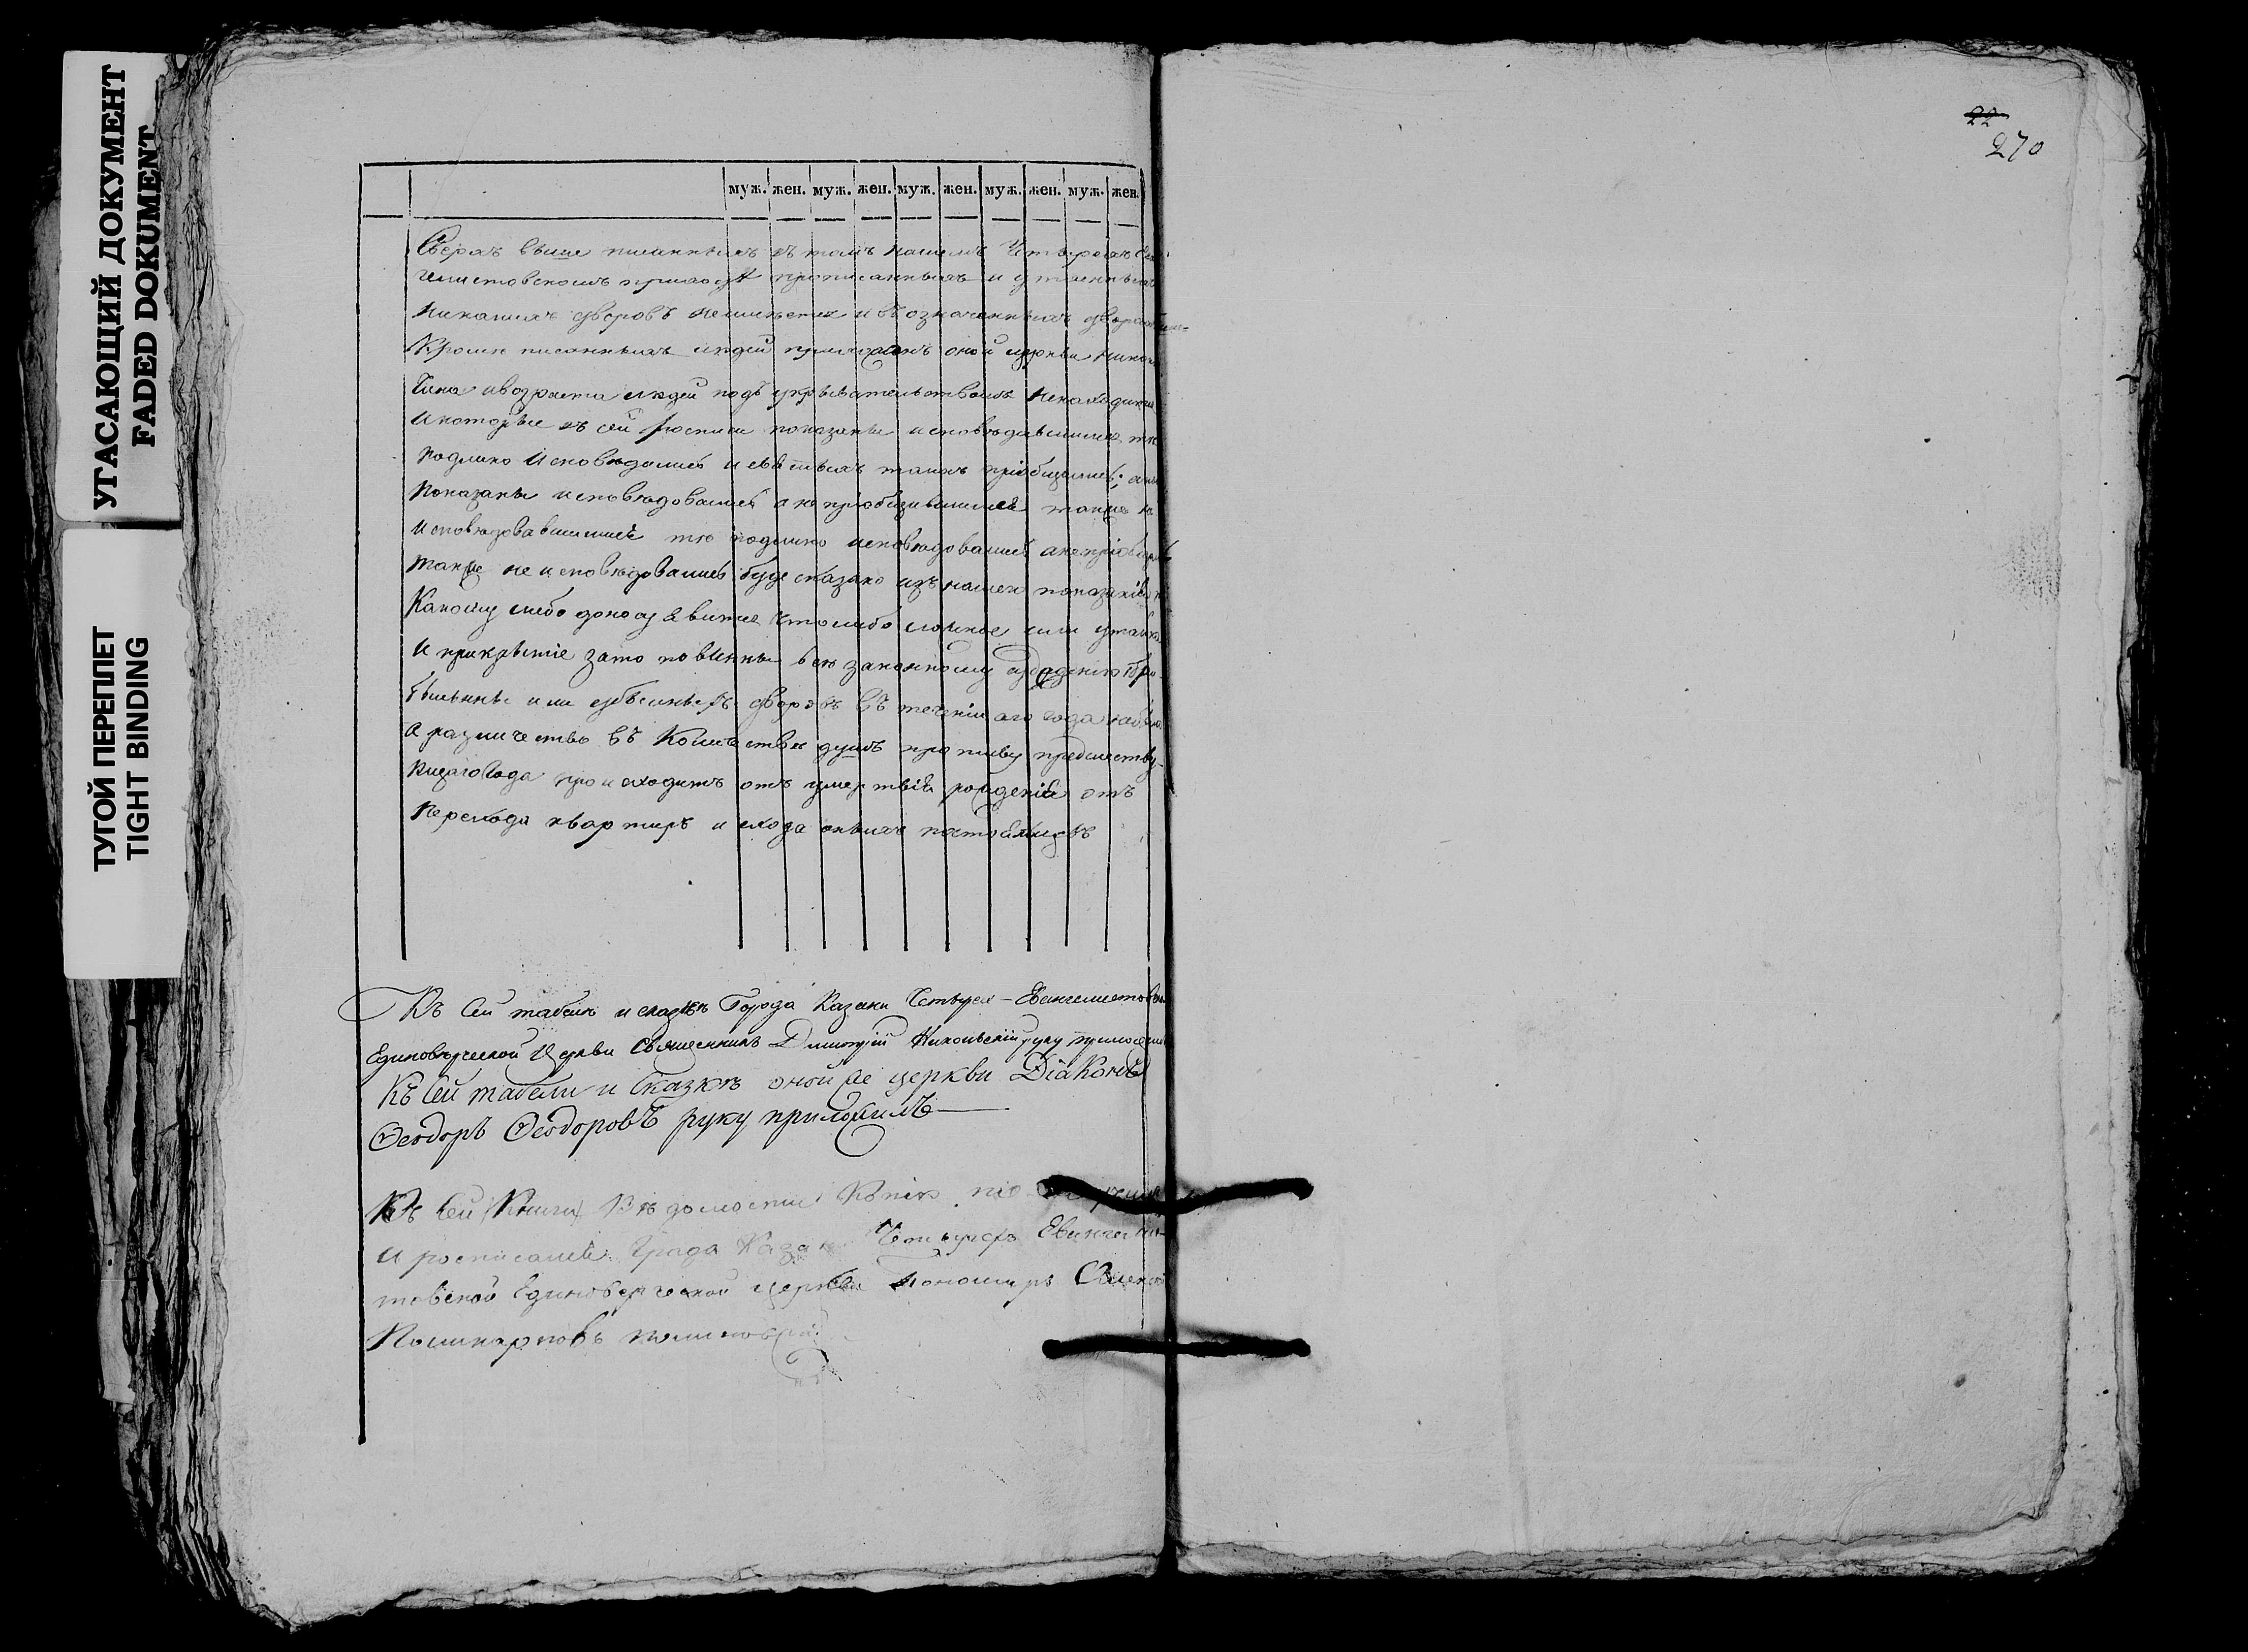 УГАСАЮЩИЙ ДОКУМЕНТ
FADED DOKUMENT
ТУГОЙ ПЕРЕПЛЕТ
TIGHT BINDING
22
270
муж. жен. муж. жен. муж. жен. муж. жен. муж. жен.
Сверхъ выше писанныхъ въ томъ нашемъ Четырехъ Еван
гелистовскомъ приходѣ прописанныхъ и утаенныхъ
Никакихъ дворовъ неимѣется и въ означенныхъ дворахъ
Кромѣ писанныхъ людей прихожанъ оной церкви никако
Чина ивозраста людей подъ укрывательствомъ ненаходится
Икоторые въ сей росписи показаны исповѣдавшимися тѣ
подлино Исповѣдались и святыхъ таинъ пріобщились;
Показаны исповѣдовались а не пріобщившимися также не
исповѣдовавшимися тѣ подлино исповѣдовались анепріобщ
также не исповѣдовались буде сказано изъ нашея показанія
Какому либо доносу явится что либо ложное или утайка
И прикрытіе зато повинны всѣ законному осуждению
или дворовъ въ теченіи его года
а различество въ Количествѣ душъ противу предшеству-
ющаго Года происходитъ отъ умертвія рожденія отъ
Перехода квартиръ и схода оныхъ
Къ Сей табели и сказкѣ Города Казани Четырех-Евангелистовск
Единовѣрческой Церкви Священникъ Дмитрій Никольскій руку приложил
Къ Сей табели и Сказкѣ оной же церкви Dіаконъ
Ѳеодоръ Ѳеодоровъ руку приложилъ
Къ Сей Книги Вѣдомости Копіи
И росписался Града Казани Четырехъ Евангелис-
товской Единоверческой церкви Пономарь Алексѣй
Поликарповъ